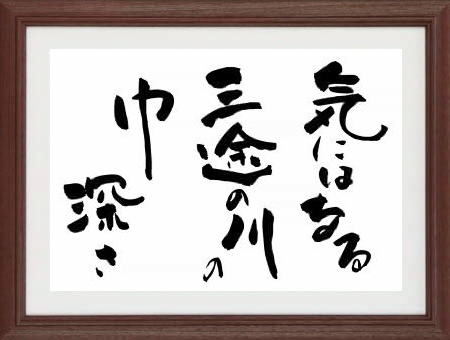 気にはなる
三途の川の
巾
深さ